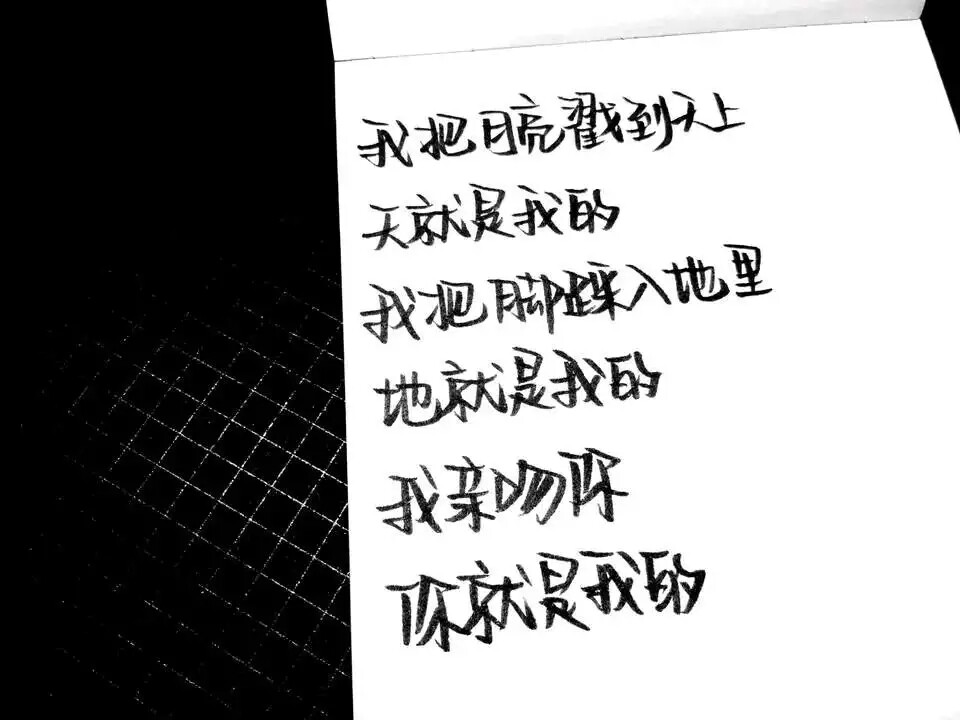 我把月亮戳到天上
天就是我的
我把脚踩入地里
地就是我的
我亲吻你
你就是我的